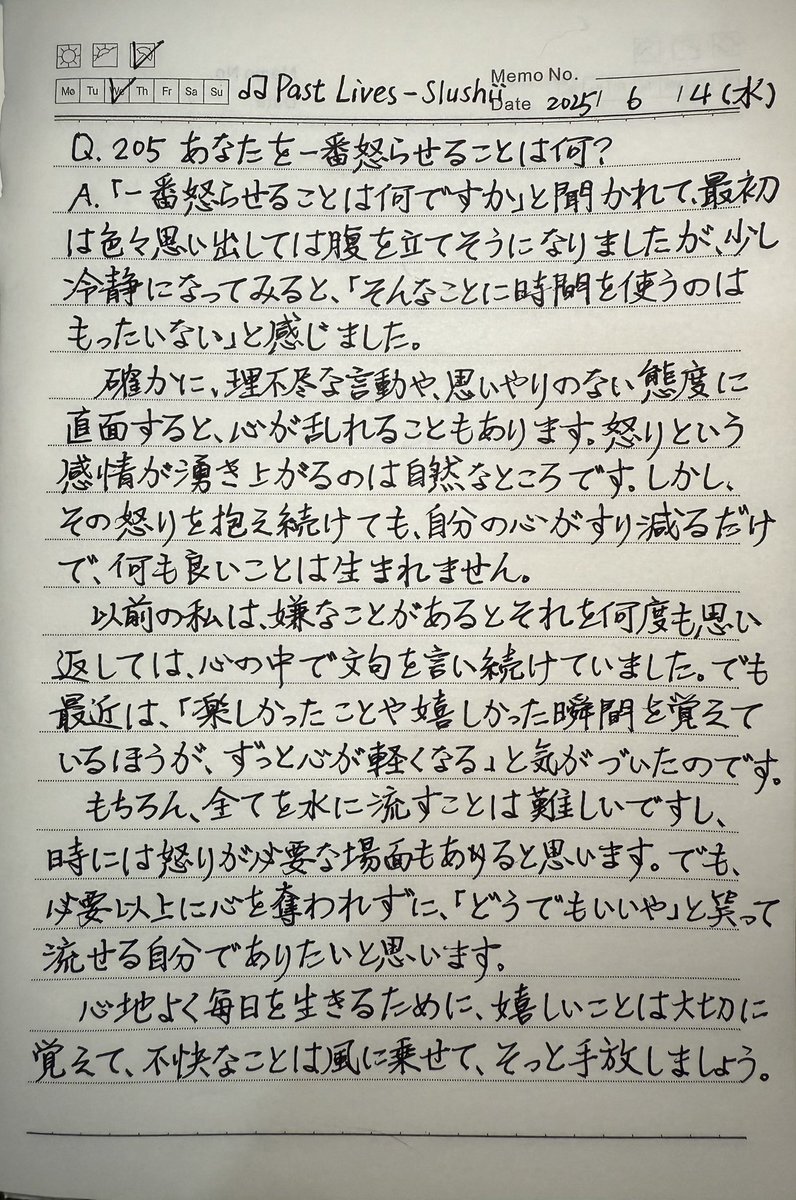 Mo Tu We Th Fr Sa Su
♫ Past Lives - Slushii
Memo No.
Date 2025/ 6 /4(水)
Q. 205 あなたを一番怒らせることは何?
A.「一番怒らせることは何ですか」と聞かれて、最初
は色々思い出しては腹を立てそうになりましたが、少し
冷静になってみると、「そんなことに時間を使うのは
もったいない」と感じました。
確かに、理不尽な言動や、思いやりのない態度に
直面すると、心が乱れることもあります。怒りという
感情が湧き上がるのは自然なところです。しかし、
その怒りを抱え続けても、自分の心がすり減るだけ
で、何も良いことは生まれません。
以前の私は、嫌なことがあるとそれを何度も思い
返しては、心の中で文句を言い続けていました。でも
最近は、「楽しかったことや嬉しかった瞬間を覚えて
いるほうが、ずっと心が軽くなる」と気がづいたのです。
もちろん、全てを水に流すことは難しいですし、
時には怒りが必要な場面もあると思います。でも、
必要以上に心を奪われずに、「どうでもいいや」と笑って
流せる自分でありたいと思います。
心地よく毎日を生きるために、嬉しいことは大切に
覚えて、不快なことは風に乗せて、そっと手放しましょう。